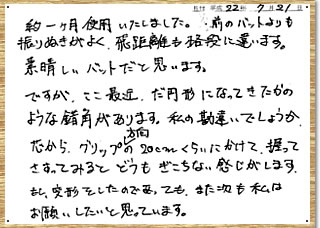 日付 平成 22年 7月 21日
約一ヶ月使用いたしました。前のバットよりも
振りぬきがよく、飛距離も格段に違います。
素晴しいバットだと思います。
ですが、ここ最近、だ円形になってきたかの
ような錯角があります。私の勘違いでしょうか
芯から、グリップ方向の20cmくらいにかけて、握って
さすってみると どうも ぎこちない感じがします。
もし、変形をしたのであっても、また次も私は
お願いしたいと思っています。